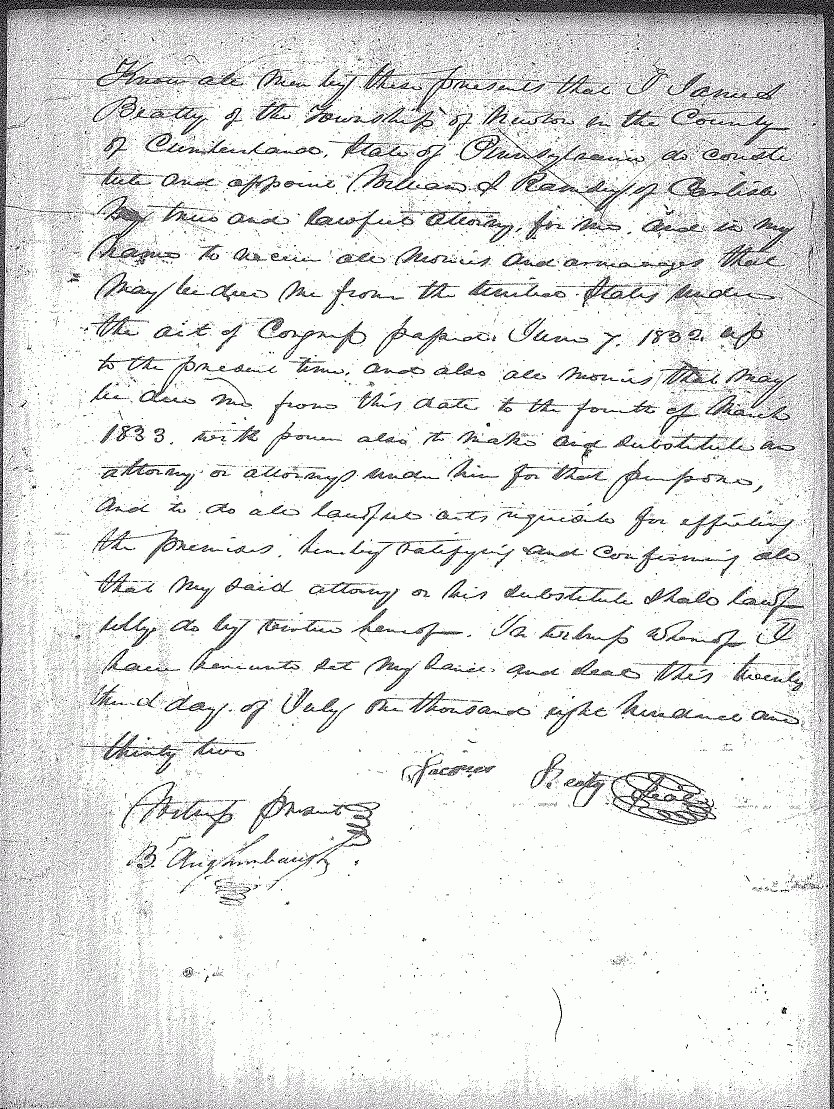 Know all Men by these presents that I James
Beatty of the Township of Newton in the County
of Cumberland, State of Pennsylvania do consti
tute and appoint William S Ramsey of Carlisle
my true and lawful attorny, for me, and in my
name to receive all monies and arrearages that
may be due me from the United States under
the act of Congress passed June 7, 1832 up
to the present time, and also all monies that may
be due me from this date to the fourth of March
1833. with power also to make and substitute an
attorny or attornys under him for that purpose,
and to do all lawful acts requisite for effecting
the premises, hereby ratifying and confirming all
that my said attorny or his substitute shall law
fully do by virtue hereof. In witness whereof I
have hereunto set my hand and seal this twenty
third day of July one thousand eight hundred and
thirty two
James Beaty Seal
Witness present
B. Aughinbaugh